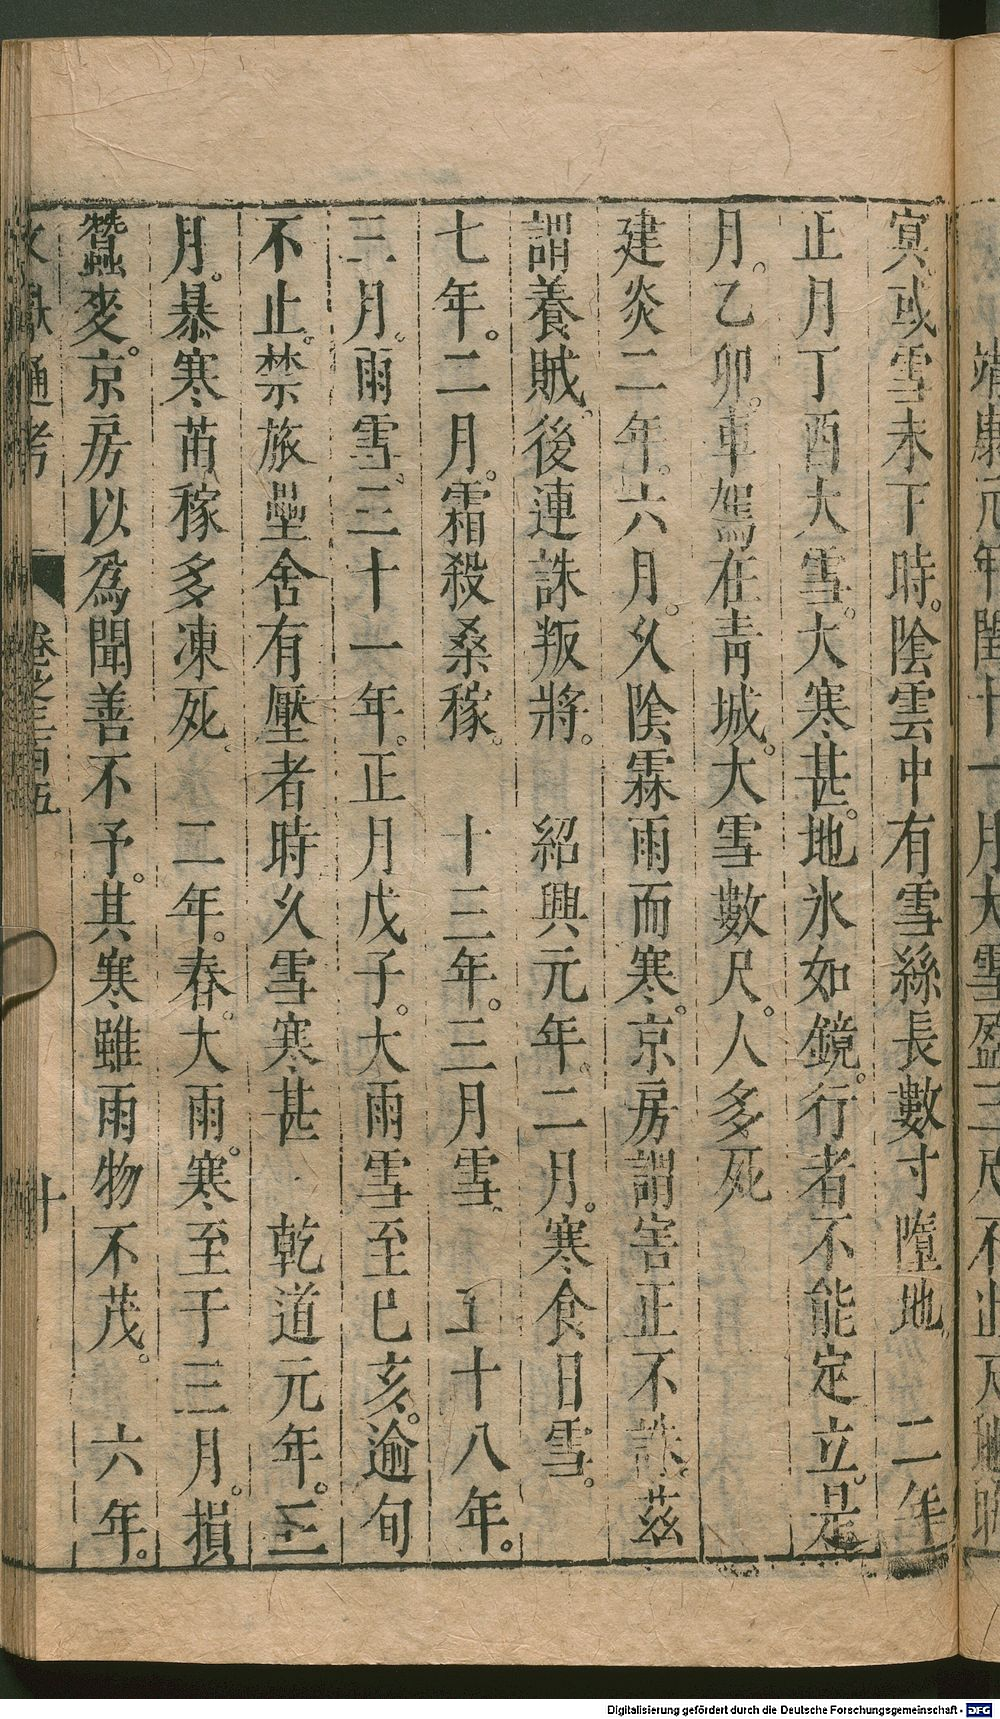 靖康元年閏十一月大雪盈三尺不止天地晦
冥或雪未下時陰雲中有雪絲長數寸墮地 二年
正月丁酉大雪大寒甚地氷如鏡行者不能定立是
月乙卯車駕在青城大雪數尺人多死
建炎二年六月久陰霖雨而寒京房謂害正不誅茲
謂養賊後連誅叛將 紹興元年二月寒食日雪
七年二月霜殺桑稼 十三年三月雪 十八年
三月雨雪三十一年正月戊子大雨雪至己亥逾旬
不止禁旅壘舍有壓者時久雪寒甚 乾道元年三
月暴寒苗稼多凍死 二年春大雨寒至于三月損
蠶麥京房以爲聞善不予其寒雖雨物不茂 六年
文獻通考 卷之三百五 十
Digitalisierung gefördert durch die Deutsche Forschungsgemeinschaft - DFG